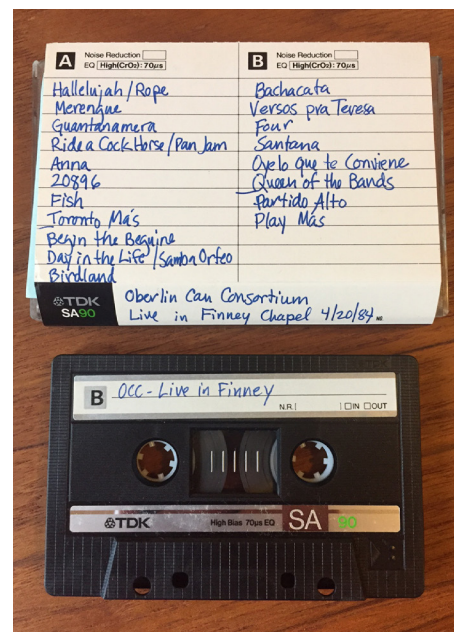 A Noise Reduction
EQ High(CrO₂): 70µs
Hallelujah / Rope
Merengue
Guantanamera
Ride a Cock Horse / Pan Jam
Anna
20896
Fish
Toronto Más
Begin the Beguine
Day in the Life / Samba Orfeo
Birdland
B Noise Reduction
EQ High(CrO₂): 70µs
Bachacata
Versos pra Teresa
Four
Santana
Oyelo que te Conviene
Queen of the Bands
Partido Alto
Play Más
TDK
SA90
Oberlin Can Consortium
Live in Finney Chapel 4/20/84
B OCC - Live in Finney
N.R. IN OUT
TDK High Bias 70µs EQ SA 90